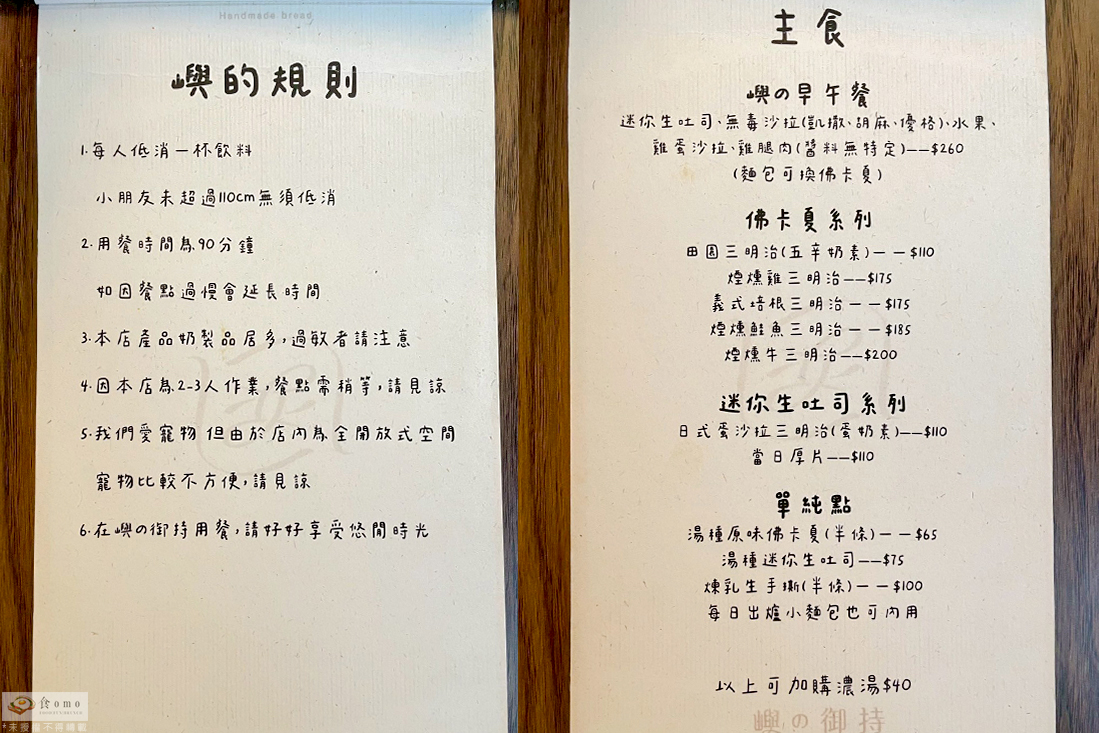 Handmade bread
嶼的規則
1.每人低消一杯飲料
小朋友未超過110cm無須低消
2.用餐時間為90分鐘
如因餐點過慢會延長時間
3.本店產品奶製品居多,過敏者請注意
4.因本店為2-3人作業,餐點需稍等,請見諒
5.我們愛寵物 但由於店內為全開放式空間
寵物比較不方便,請見諒
6.在嶼の御持用餐,請好好享受悠閒時光
食omo
主食
嶼の早午餐
迷你生吐司、無毒沙拉(凱撒、胡麻、優格)、水果、
雞蛋沙拉、雞腿肉(醬料無特定)——$260
(麵包可換佛卡夏)
佛卡夏系列
田園三明治(五辛奶素)——$110
煙燻雞三明治——$175
義式培根三明治——$175
煙燻鮭魚三明治——$185
煙燻牛三明治——$200
迷你生吐司系列
日式蛋沙拉三明治(蛋奶素)——$110
當日厚片——$110
單純點
湯種原味佛卡夏(半條)——$65
湯種迷你生吐司——$75
煉乳生手撕(半條)——$100
每日出爐小麵包也可內用
以上可加購濃湯$40
嶼の御持